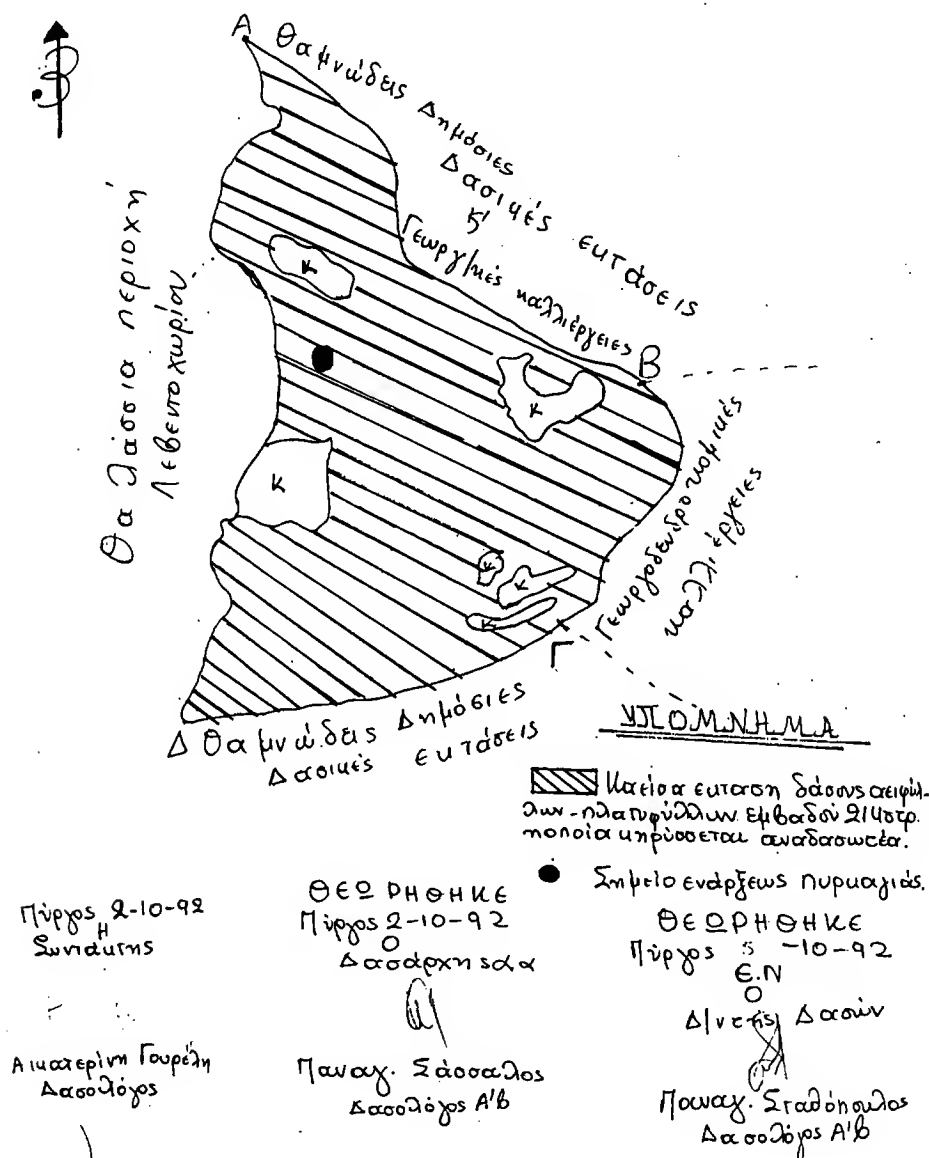 Α
Θαμνώδεις Δημόσιες
Δασικές εκτάσεις
κ'
Γεωργ/κές καλλιέργειες
Β
Θαλάσσια περιοχή
Λεβεντοχωρίου
Κ
Κ
Κ
Κ
Κ
Κ
Γεωργοδενδροκομικές
καλλιέργειες
Γ
Δ
Θαμνώδεις Δημόσιες
Δασικές εκτάσεις
ΥΠΟΜΝΗΜΑ
Καείσα εκταση δάσους αειφύλ-
λων-πλατυφύλλων εμβαδού 214στρ.
ηοποία κηρύσσεται αναδασωτέα.
Σημείο ενάρξεως πυρκαγιάς.
Πύργος 2-10-92
Η
Συντάκτης
Αικατερίνη Γουρέλη
Δασολόγος
ΘΕΩΡΗΘΗΚΕ
Πύργος 2-10-92
Ο
Δασάρχης α α
Παναγ. Σάσσαλος
Δασολόγος Α'β
ΘΕΩΡΗΘΗΚΕ
Πύργος 5 -10-92
Ε.Ν
Ο
Δ/ντής Δασών
Παναγ. Σταθόπουλος
Δασολόγος Α'β